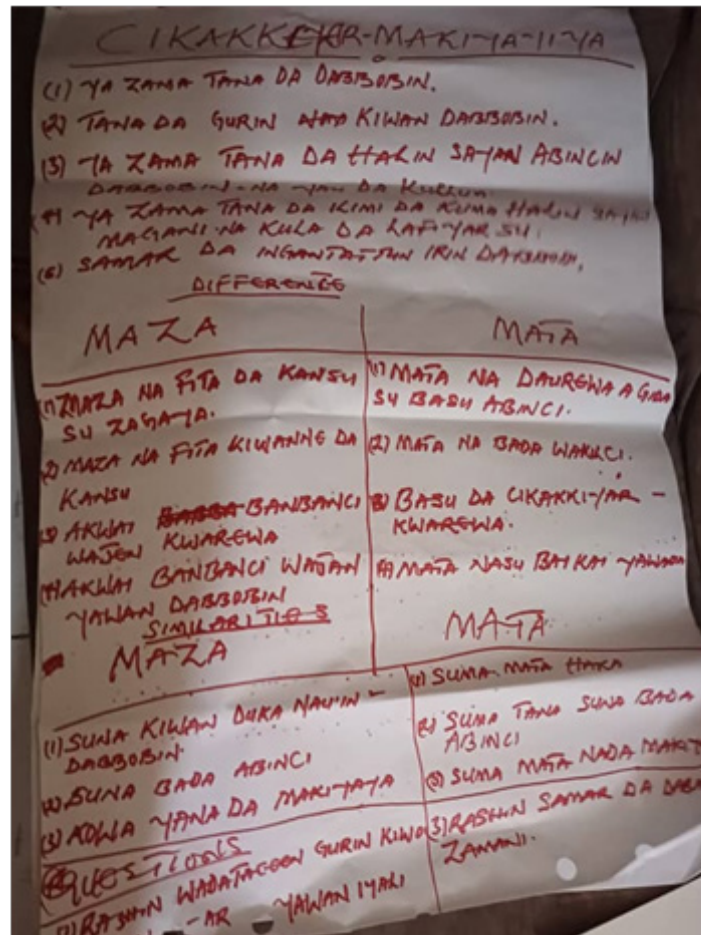 CIKAKKEYAR-MAKIYA-IIYA
(1) YA ZAMA TANA DA DABBOBIN.
(2) TANA DA GURIN KIWAN DABBOBIN.
(3) YA ZAMA TANA DA HALIN SAYAN ABINCIN
DABBOBIN NA YAU DA KULLUM.
(4) YA ZAMA TANA DA ILIMI DA KUMA HALIN SAYAN
MAGANI NA KULA DA LAFIYAR SU.
(6) SAMAR DA INGANTATSUN IRIN
DIFFERENCE
MAZA
(1) MAZA NA FITA DA KANSU
SU ZAGAYA.
2) MAZA NA FITA KIWANNE DA
KANSU
(3) AKWAI BANBANCI
WAJEN KWAREWA
(4) AKWAI BANBANCI WAJAN
YAWAN DABBOBIN
MATA
(1) MATA NA DAUREWA A GIDA
SU BASU ABINCI.
(2) MATA NA BADA WAKILCI.
(3) BASU DA CIKAKKIYAR -
KWAREWA.
(4) MATA NASU BAI KAI YAWA
SIMILARITIES
MAZA
(1) SUNA KIWAN DUKA NAU'IN -
DABBOBIN
(2) SUNA BADA ABINCI
(3) KOWA YANA DA MAKIYAYA
MATA
(1) SUMA MATA HAKA
(2) SUMA TANA SUNA BADA
ABINCI
(3) SUMA MATA NADA
QUESTIONS
(1) RASHIN WADATACCEN GURIN KIWO
-AR YAWAN IYALI
(3) RASHIN SAMAR DA
ZAMANI.